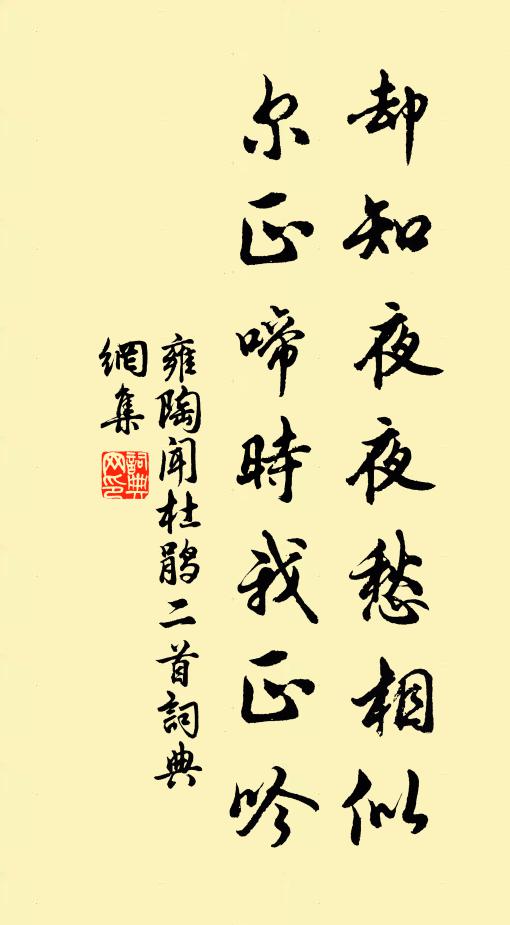 却知夜夜愁相似
尔正啼時我正吟
雍陶闻杜鹃二首詞典
網集
詞典網印